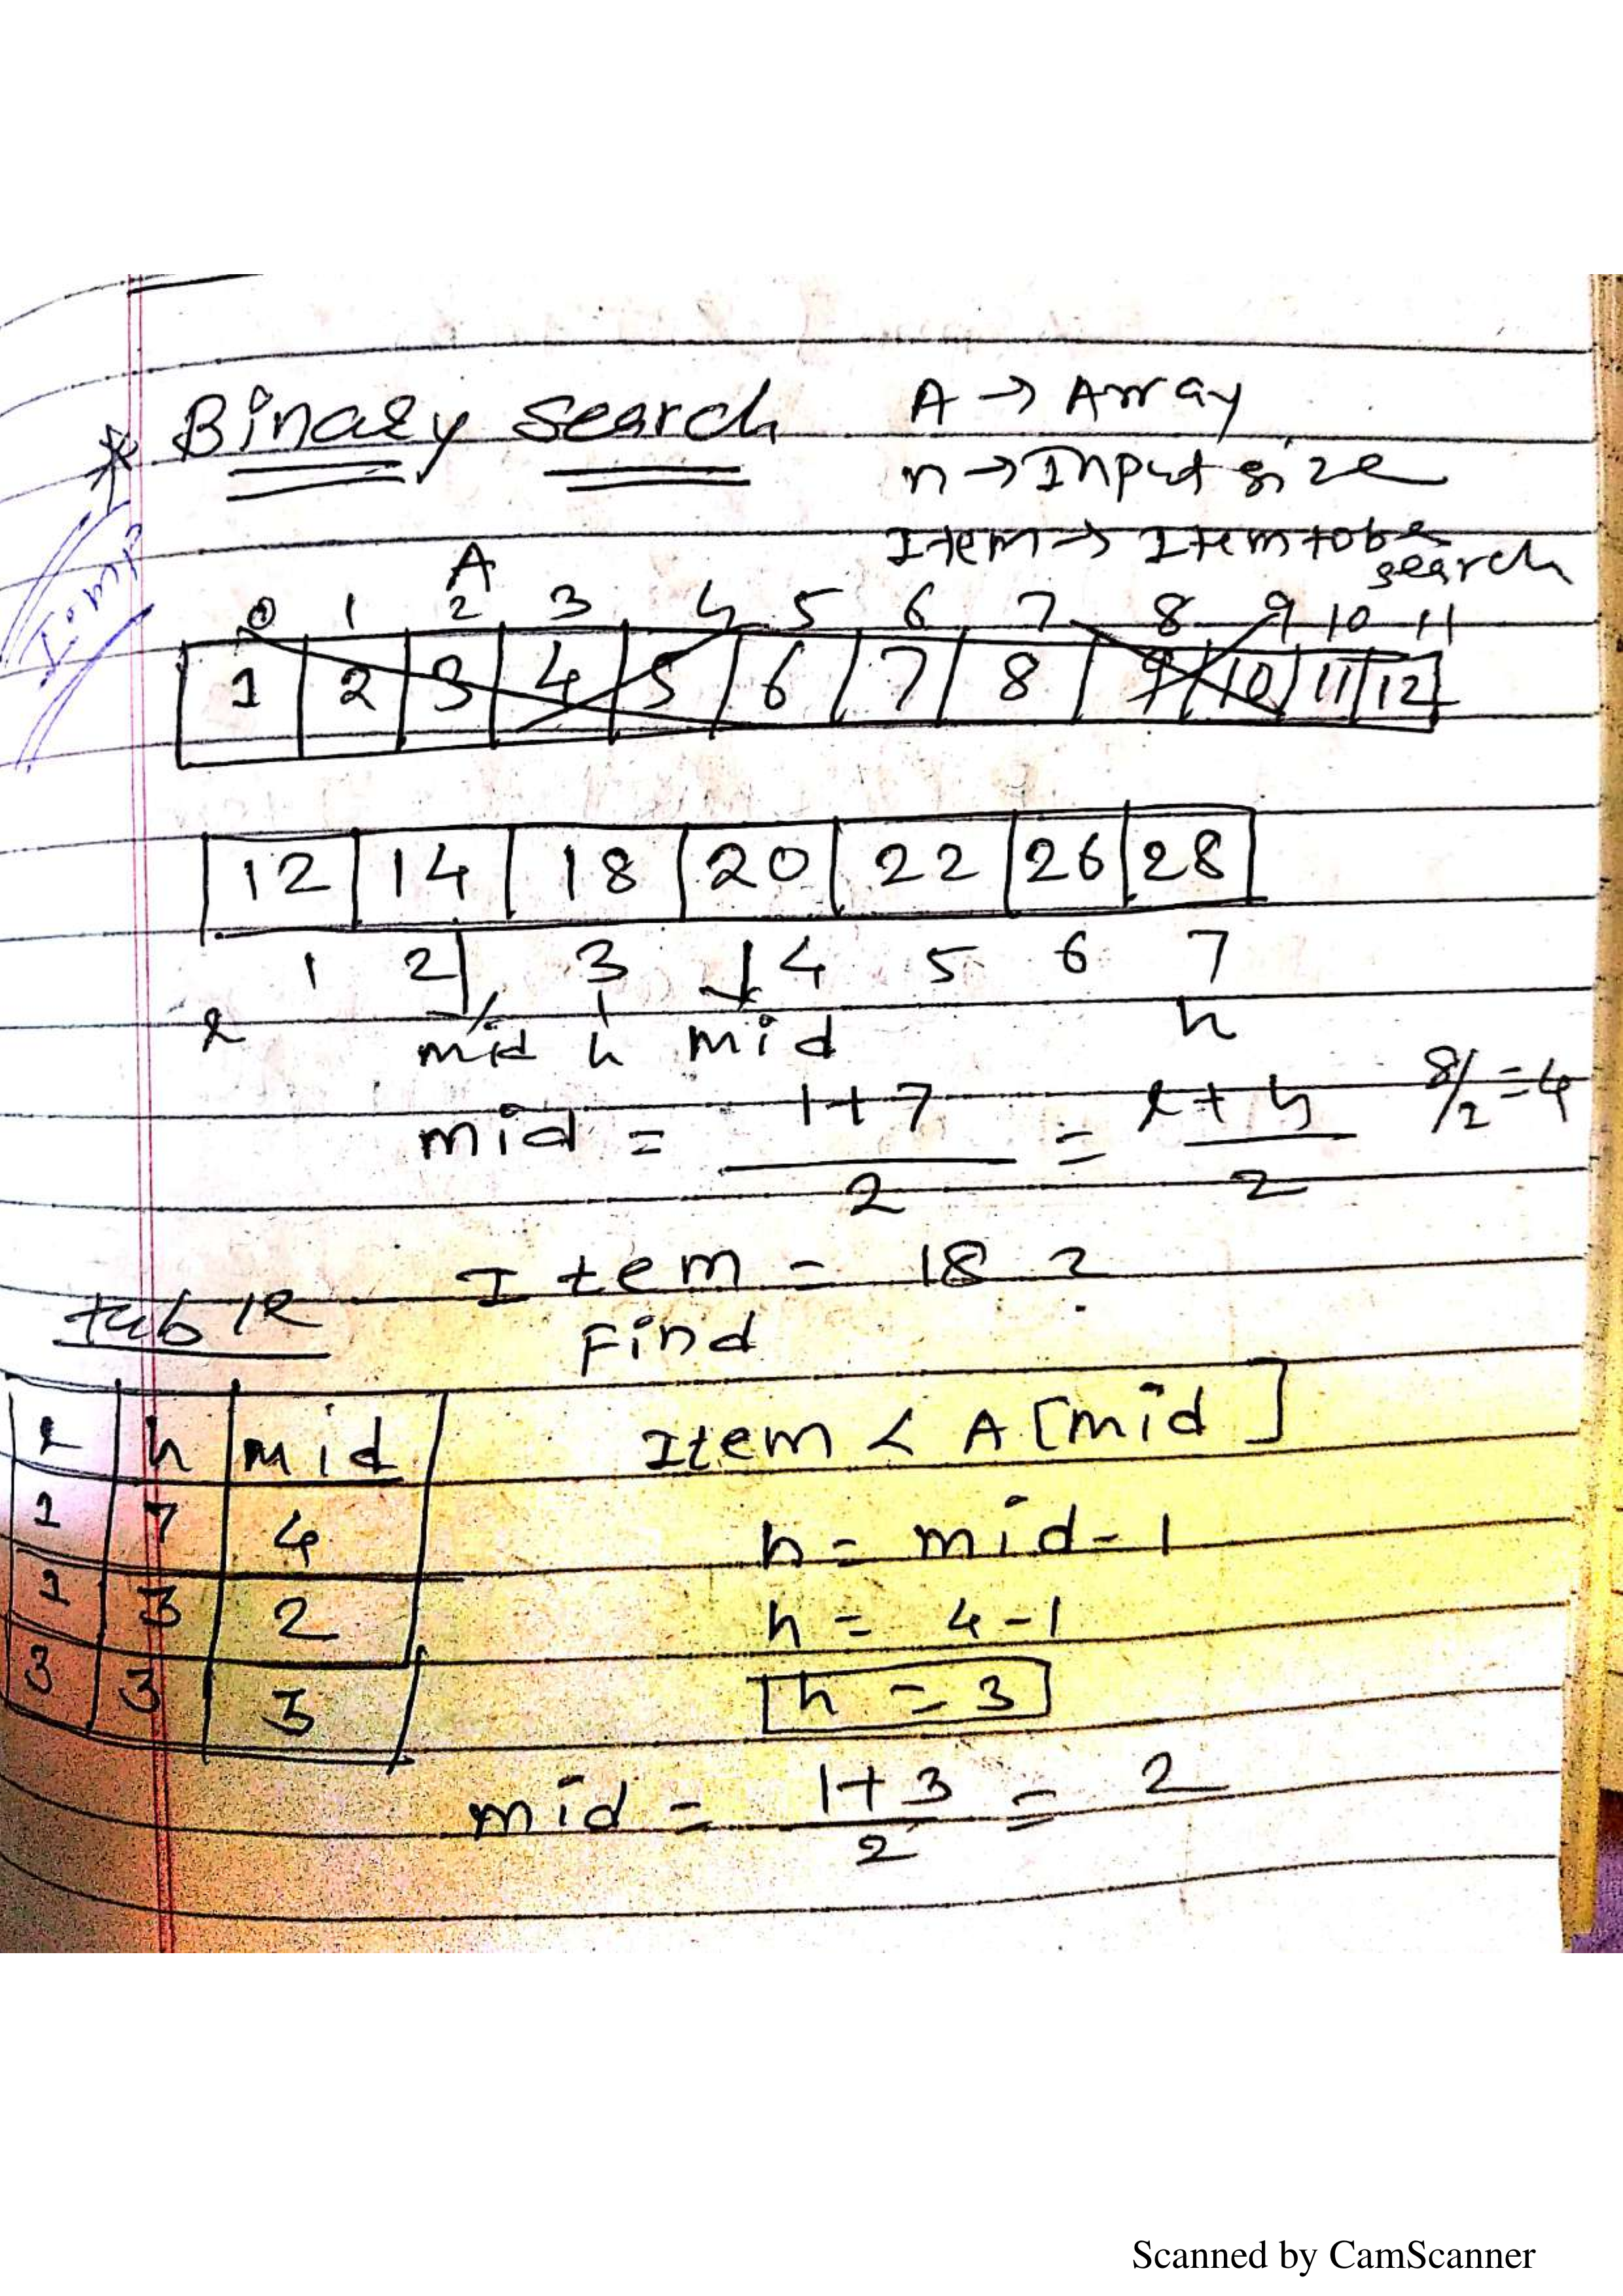 * Binary Search
A → Array
n → Input size
Item → Item to be
search
Imp
A
0 1 2 3 4 5 6 7 8 9 10 11
1 2 3 4 5 6 7 8 9 10 11 12
12 14 18 20 22 26 28
1 2 3 4 5 6 7
l mid h mid h
mid = 1+7 / 2 = l+h / 2 8/2 = 4
Item = 18 ?
Find
table
l h mid
1 7 4
1 3 2
3 3 3
Item < A [mid]
h = mid - 1
h = 4 - 1
h = 3
mid = 1+3 / 2 = 2
Scanned by CamScanner